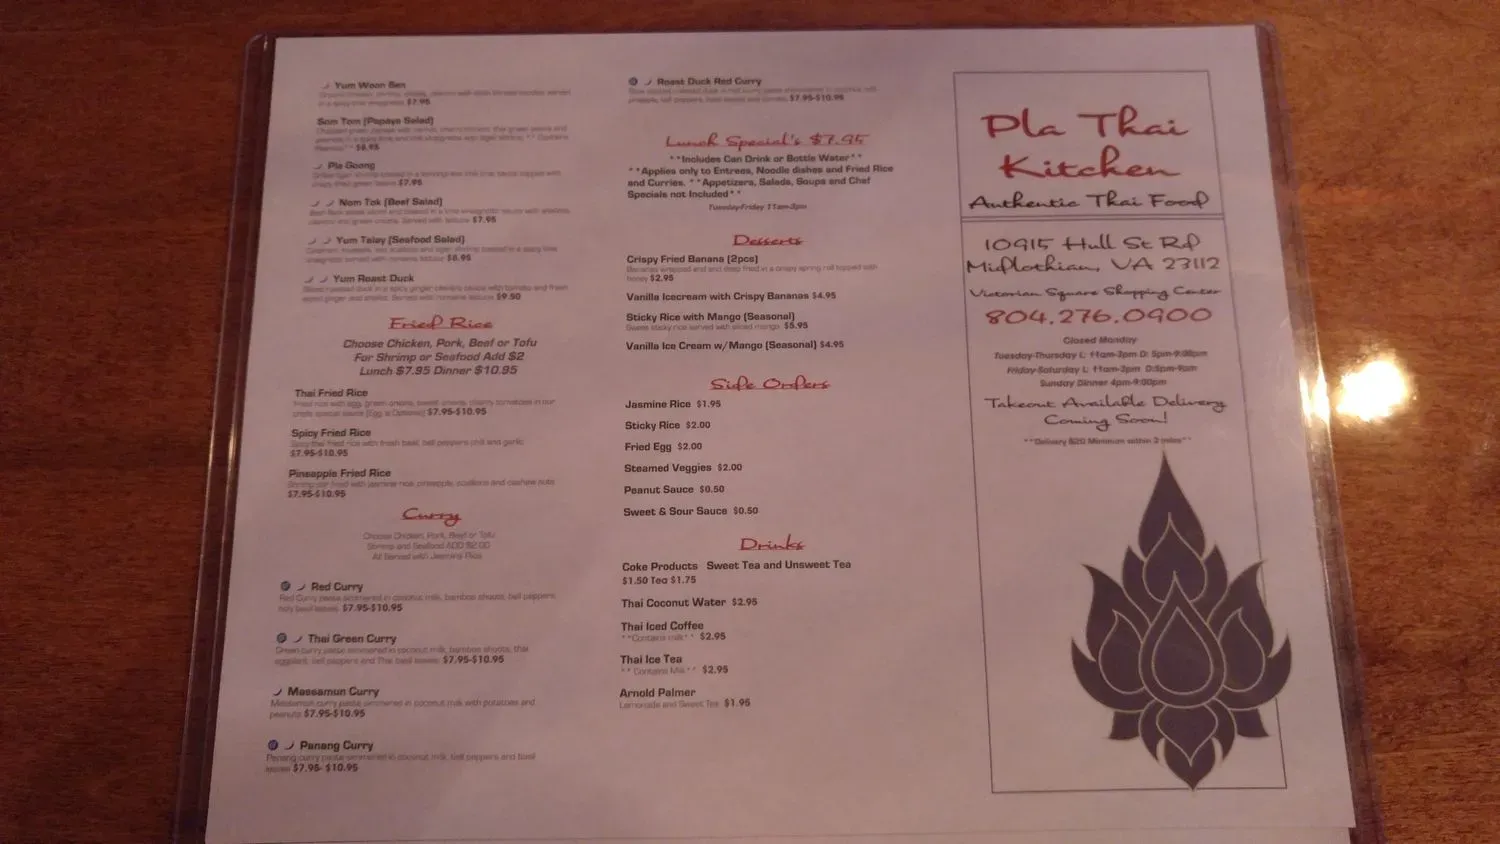 Yum Woon Sen
in a spicy lime vinaigrette $7.95
Som Tom (Papaya Salad)
$8.95
Pla Goong
$7.95
Nam Tok (Beef Salad)
Served with lettuce $7.95
Yum Talay (Seafood Salad)
vinaigrette served with romaine lettuce $8.95
Yum Roast Duck
Served with romaine lettuce $9.50
Fried Rice
Choose Chicken, Pork, Beef or Tofu
For Shrimp or Seafood Add $2
Lunch $7.95 Dinner $10.95
Thai Fried Rice
Fried rice with egg, green onions, sweet onions, cherry tomatoes in our
chefs special sauce (Egg is Optional) $7.95-$10.95
Spicy Fried Rice
Spicy thai fried rice with fresh basil, bell peppers chili and garlic
$7.95-$10.95
Pineapple Fried Rice
Shrimp stir fried with jasmine rice, pineapple, scallions and cashew nuts
$7.95-$10.95
Curry
Choose Chicken, Pork, Beef or Tofu
Shrimp and Seafood ADD $2.00
All Served with Jasmine Rice
Red Curry
Red Curry paste simmered in coconut milk, bamboo shoots, bell peppers,
holy basil leaves $7.95-$10.95
Thai Green Curry
Green curry paste simmered in coconut milk, bamboo shoots, thai
eggplant, bell peppers and Thai basil leaves $7.95-$10.95
Massamun Curry
Massamun curry paste simmered in coconut milk with potatoes and
peanuts $7.95-$10.95
Panang Curry
Panang curry paste simmered in coconut milk, bell peppers and basil
leaves $7.95- $10.95
Roast Duck Red Curry
$7.95-$10.95
Lunch Special's $7.95
**Includes Can Drink or Bottle Water**
**Applies only to Entrees, Noodle dishes and Fried Rice
and Curries. **Appetizers, Salads, Soups and Chef
Specials not Included**
Tuesday-Friday 11am-3pm
Desserts
Crispy Fried Banana (2pcs)
Bananas wrapped and and deep fried in a crispy spring roll topped with
honey $2.95
Vanilla Icecream with Crispy Bananas $4.95
Sticky Rice with Mango (Seasonal)
Sweet sticky rice served with sliced mango $5.95
Vanilla Ice Cream w/Mango (Seasonal) $4.95
Side Orders
Jasmine Rice $1.95
Sticky Rice $2.00
Fried Egg $2.00
Steamed Veggies $2.00
Peanut Sauce $0.50
Sweet & Sour Sauce $0.50
Drinks
Coke Products Sweet Tea and Unsweet Tea
$1.50 Tea $1.75
Thai Coconut Water $2.95
Thai Iced Coffee
**Contains milk** $2.95
Thai Ice Tea
** Contains Milk** $2.95
Arnold Palmer
Lemonade and Sweet Tea $1.95
Pla Thai
Kitchen
Authentic Thai Food
10915 Hull St Rd
Midlothian, VA 23112
Victorian Square Shopping Center
804.276.0900
Closed Monday
Tuesday-Thursday L: 11am-3pm D: 5pm-9:00pm
Friday-Saturday L: 11am-3pm D:5pm-9am
Sunday Dinner 4pm-9:00pm
Takeout Available Delivery
Coming Soon!
**Delivery $20 Minimum within 2 miles**